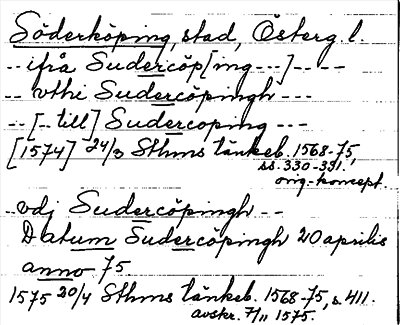 Söderköping, stad, Österg.l.
-- ifrå Sudercöp[ing ---] ----
-- vthi Sudercöpingh ---
-- [-- till] Sudercoping ---
[1574] 24/3 Sthms tänkeb. 1568-75,
ss. 330-331.
orig.-koncept.
--vdj Sudercöpingh --
Datum Sudercöpingh 20 aprilis
anno 75
1575 20/4 Sthms tänkeb. 1568-75, s. 411.
avskr. 7/11 1575.